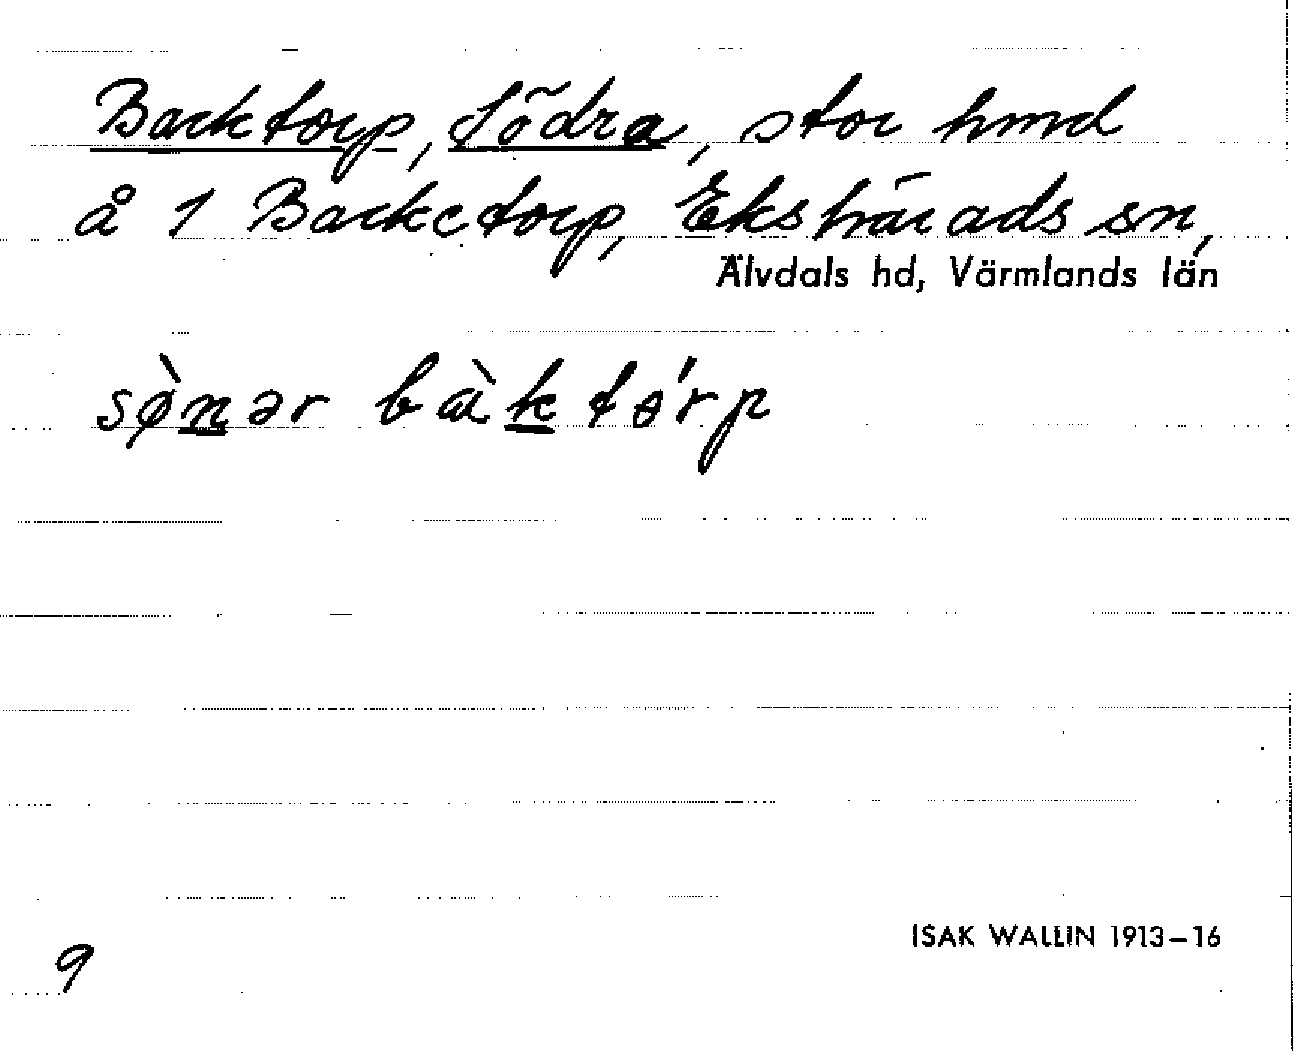 Backtorp, Södra, stor hmd
å 1 Backetorp, Ekshärads sn,
Älvdals hd, Värmlands län
sø̀nər bàktórp
ISAK WALLIN 1913–16
9